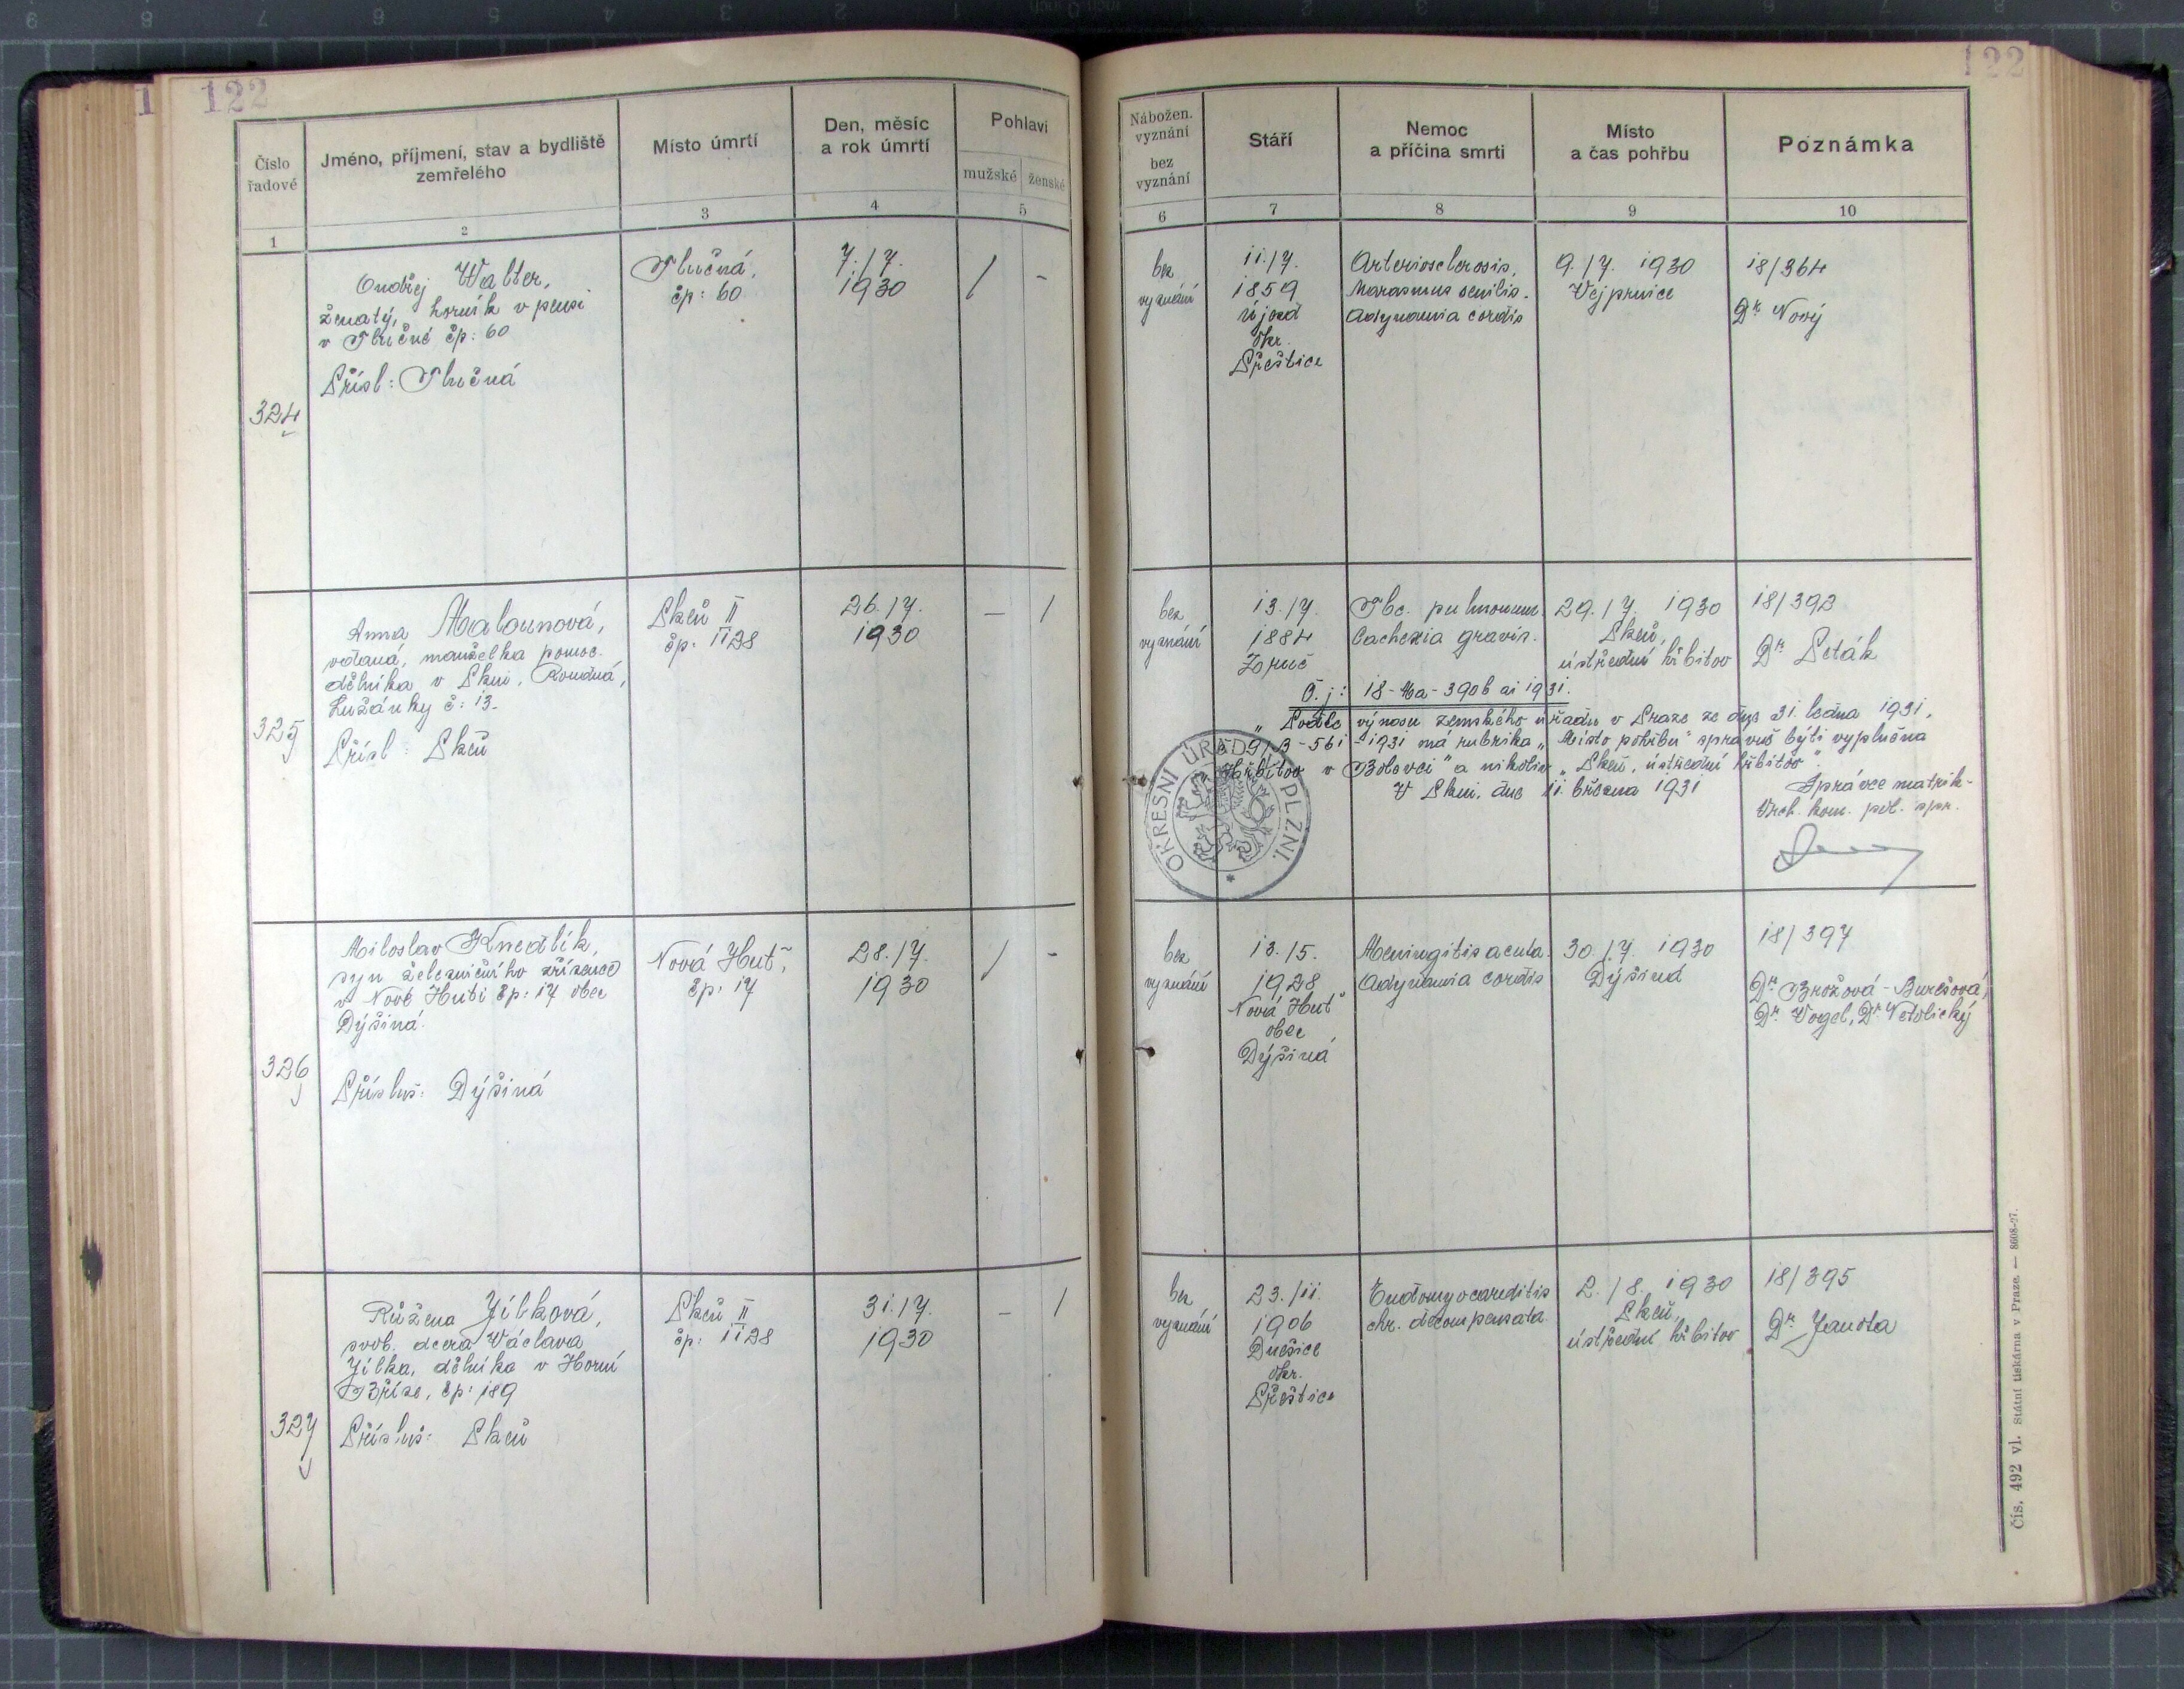 122
122
Číslo řadové
Jméno, příjmení, stav a bydliště
zemřelého
Místo úmrtí
Den, měsíc
a rok úmrtí
Pohlaví
mužské
ženské
Nábožen.
vyznání
bez
vyznání
Stáří
Nemoc
a příčina smrti
Místo
a čas pohřbu
Poznámka
1
2
3
4
5
6
7
8
9
10
324
Ondřej Walter,
ženatý, horník v pensi
v Tlučné čp: 60
Přísl: Tlučná
Tlučná,
čp: 60
7./7.
1930
/
-
bez
vyznání
11./7.
1859
Újezd
okr.
Přeštice
Arteriosclerosis,
Marasmus senilis.
Adynamia cordis
9./7. 1930
Vejprnice
18/364
Dr Nový
325
Anna Malounová,
vdaná, manželka pomoc.
dělníka v Plzni, Roudná,
Lužánky č: 13.
Přísl: Plzeň
Plzeň II
čp: 1128
26./7.
1930
-
/
bez
vyznání
13./7.
1884
Zruč
Tbc. pulmonum.
Cachexia gravis.
29./7. 1930
Plzeň,
ústřední hřbitov
18/392
Dr Peták
Č.j: 18-Ma-390b ai 1931.
„Podle výnosu zemského úřadu v Praze ze dne 31. ledna 1931,
B-561-1931 má rubrika „Místo pohřbu" správně býti vyplněna
„Hřbitov v Bolevci" a nikoliv „Plzeň, ústřední hřbitov".
V Plzni, dne 11. března 1931
Správce matrik.
Vrch. kom. pol. spr.
OKRESNÍ ÚŘAD PLZNI.
326
Miloslav Knedlík,
syn železničního zřízence
v Nové Huti čp: 17 obec
Dýšiná.
Přísluš: Dýšiná
Nová Huť,
čp: 17
28./7.
1930
/
-
bez
vyznání
13./5.
1928
Nová Huť
obec
Dýšiná
Meningitis acuta.
Adynamia cordis
30./7. 1930
Dýšiná
18/397
Dr Brožová-Burešová,
Dr. Vogel, Dr. Netolický
327
Růžena Jílková,
svob. dcera Václava
Jílka, dělníka v Horní
Bříze, čp: 189
Přísluš: Plzeň
Plzeň II
čp: 1128
31./7.
1930
-
/
bez
vyznání
23./11.
1906
Dnešice
okr.
Přeštice
Endomyocarditis
chr. decompensata.
2./8. 1930
Plzeň,
ústřední hřbitov
18/395
Dr Janota
Čís. 492 vl. Státní tiskárna v Praze. — 8608-27.